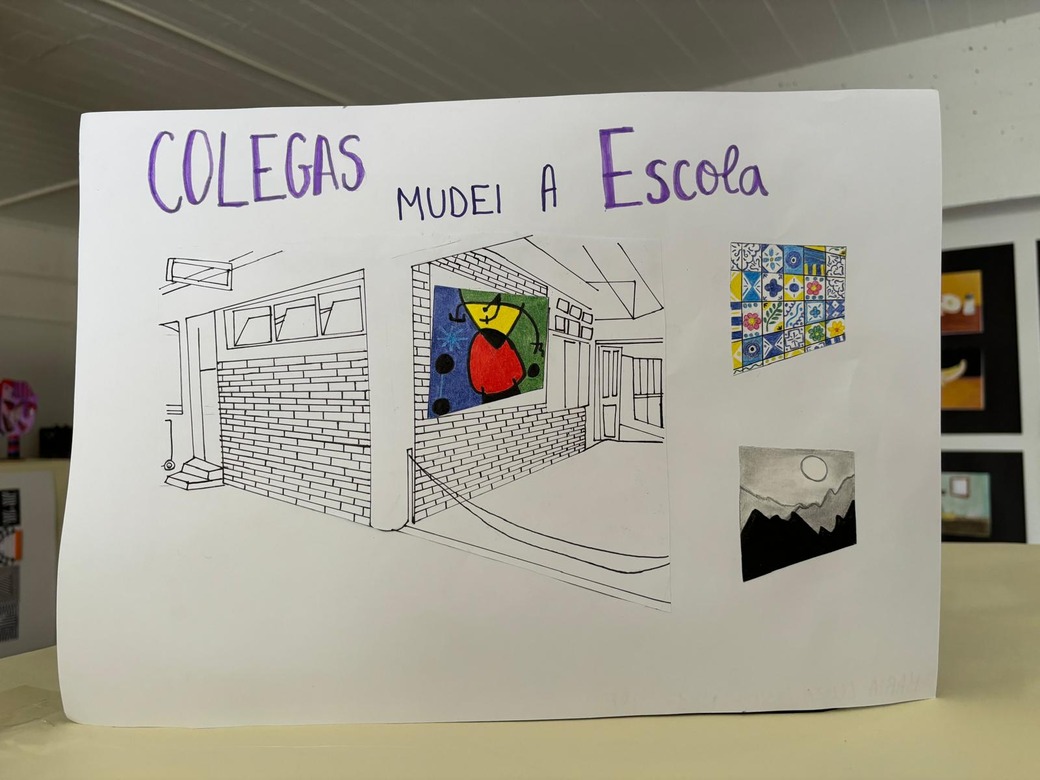 COLEGAS MUDEI A Escola